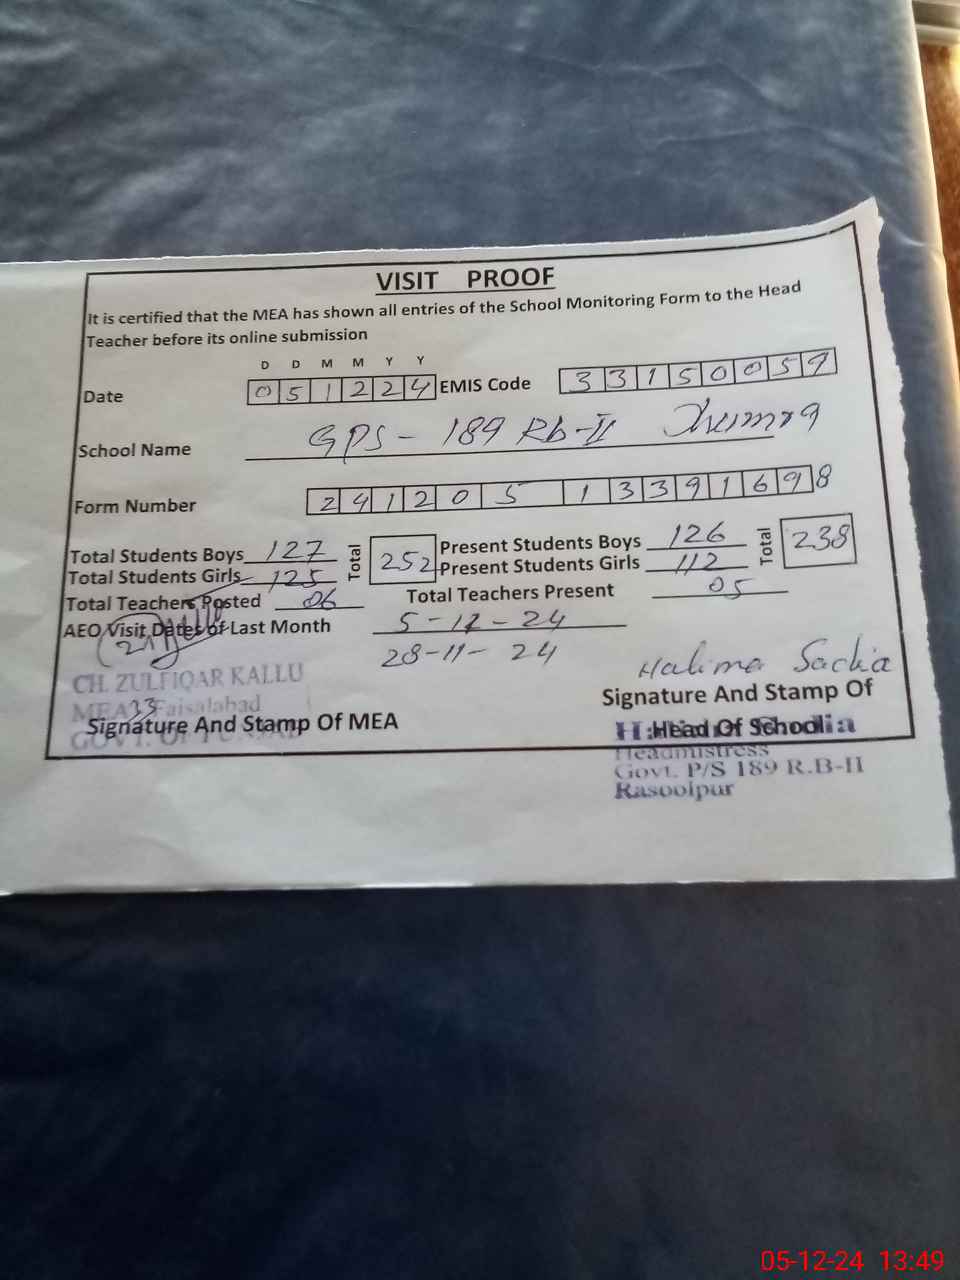 VISIT PROOF
It is certified that the MEA has shown all entries of the School Monitoring Form to the Head
Teacher before its online submission
D D M M Y Y
Date 051224 EMIS Code 33150057
School Name GPS - 189 Rb-II Jhumra
Form Number 241205 13391698
Total Students Boys 127 Total 252 Present Students Boys 126 Total 238
Total Students Girls 125 Present Students Girls 112
Total Teachers Posted 06 Total Teachers Present 05
AEO Visit Dates of Last Month 5-12-24
28-11-24
Halima Sadia
CH. ZULFIQAR KALLU
MEA 33 Faisalabad
GOVT. OF
Signature And Stamp Of MEA
Signature And Stamp Of
Head Of School
Headmistress
Govt. P/S 189 R.B-II
Rasoolpur
05-12-24 13:49